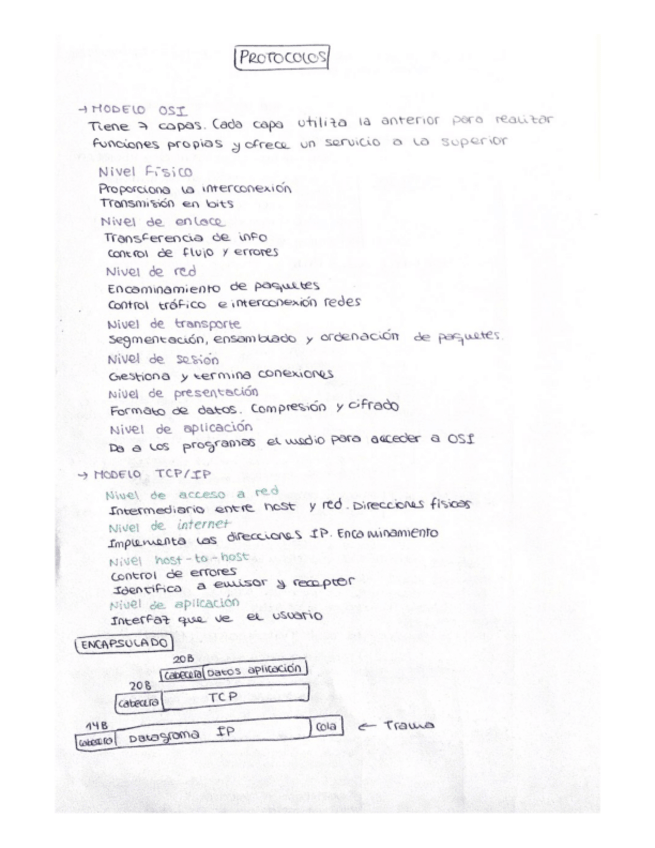 PROTOCOLOS
→ MODELO OSI
Tiene 7 capas. Cada capa utiliza la anterior para realizar
funciones propias y ofrece un servicio a la superior
Nivel Físico
Proporciona la interconexión
Transmisión en bits
Nivel de enlace
Transferencia de info
Control de flujo y errores
Nivel de red
Encaminamiento de paquetes
Control tráfico e interconexión redes
Nivel de transporte
Segmentación, ensamblado y ordenación de paquetes
Nivel de sesión
Gestiona y termina conexiones
Nivel de presentación
Formato de datos. Compresión y cifrado
Nivel de aplicación
Da a los programas el medio para acceder a OSI
→ MODELO TCP/IP
Nivel de acceso a red
Intermediario entre host y red. Direcciones físicas
Nivel de internet
Implementa las direcciones IP. Encaminamiento
Nivel host-to-host
Control de errores
Identifica a emisor y receptor
Nivel de aplicación
Interfaz que ve el usuario
ENCAPSULADO
20B
Cabecera Datos aplicación
20B
Cabecera TCP
14B
Cabecera Datagrama IP Cola ← Trama